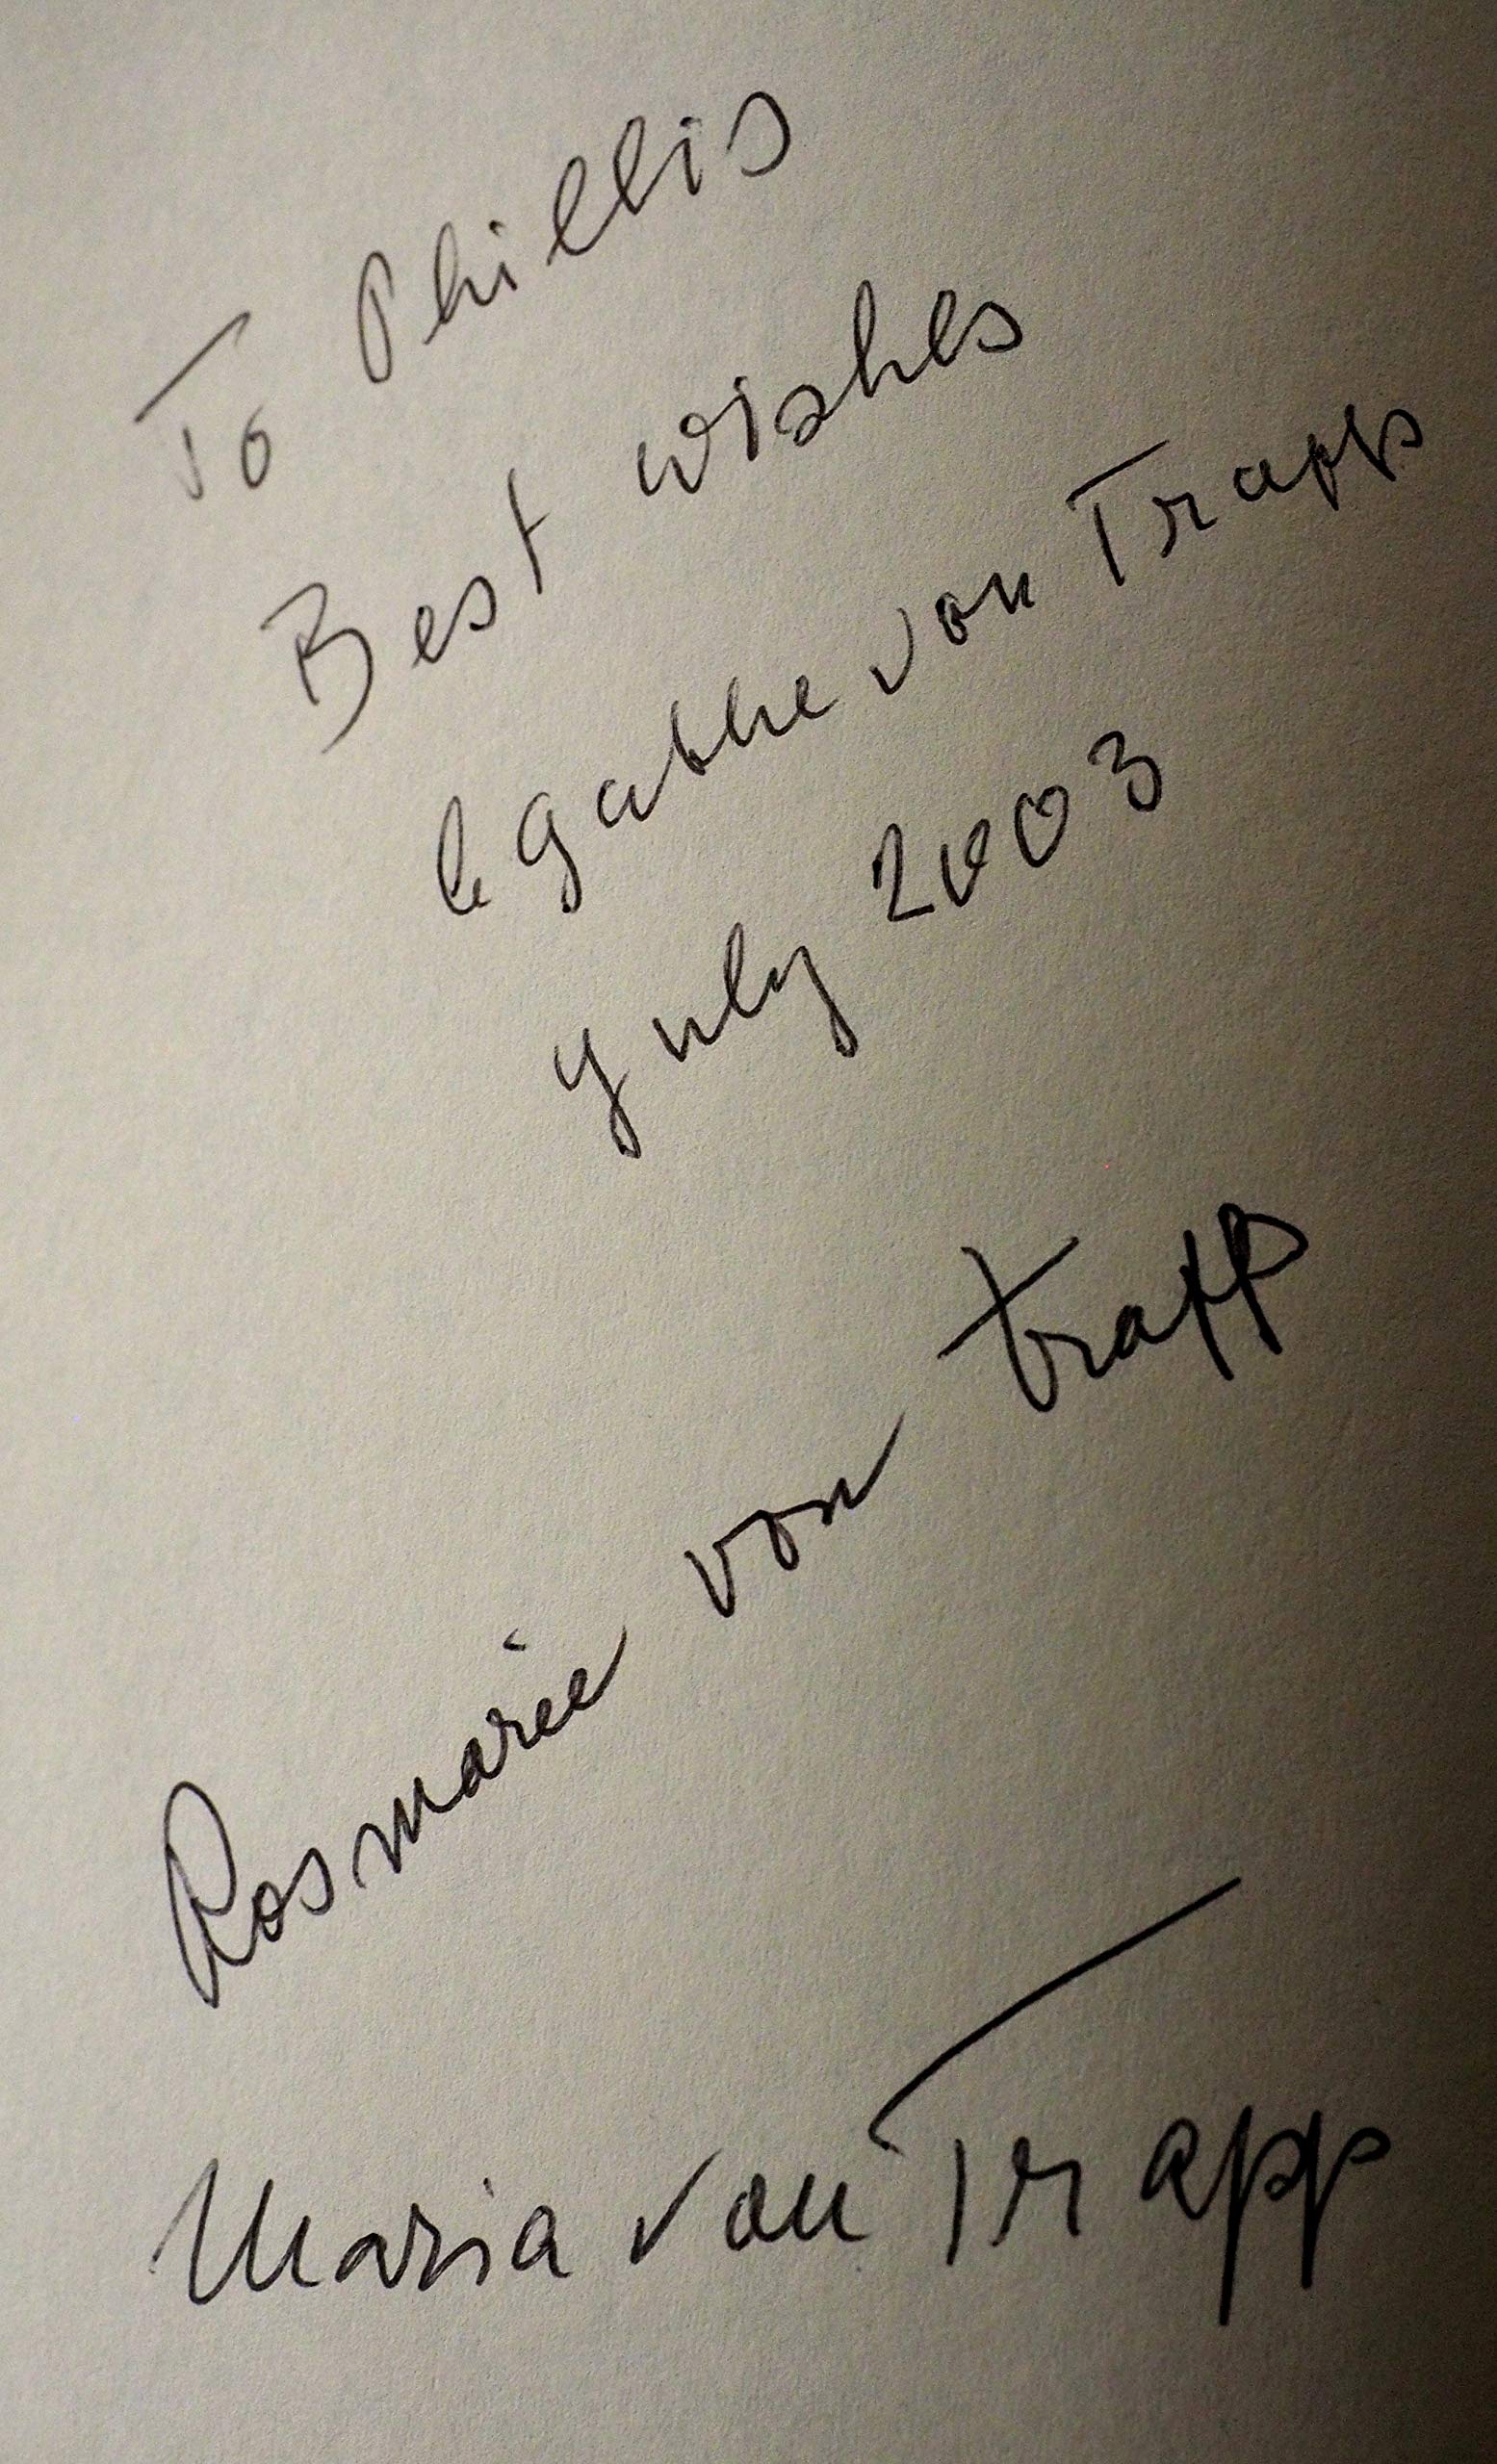 To Phillis
Best wishes
Agathe von Trapp
July 2003
Rosmarie von Trapp
Maria von Trapp